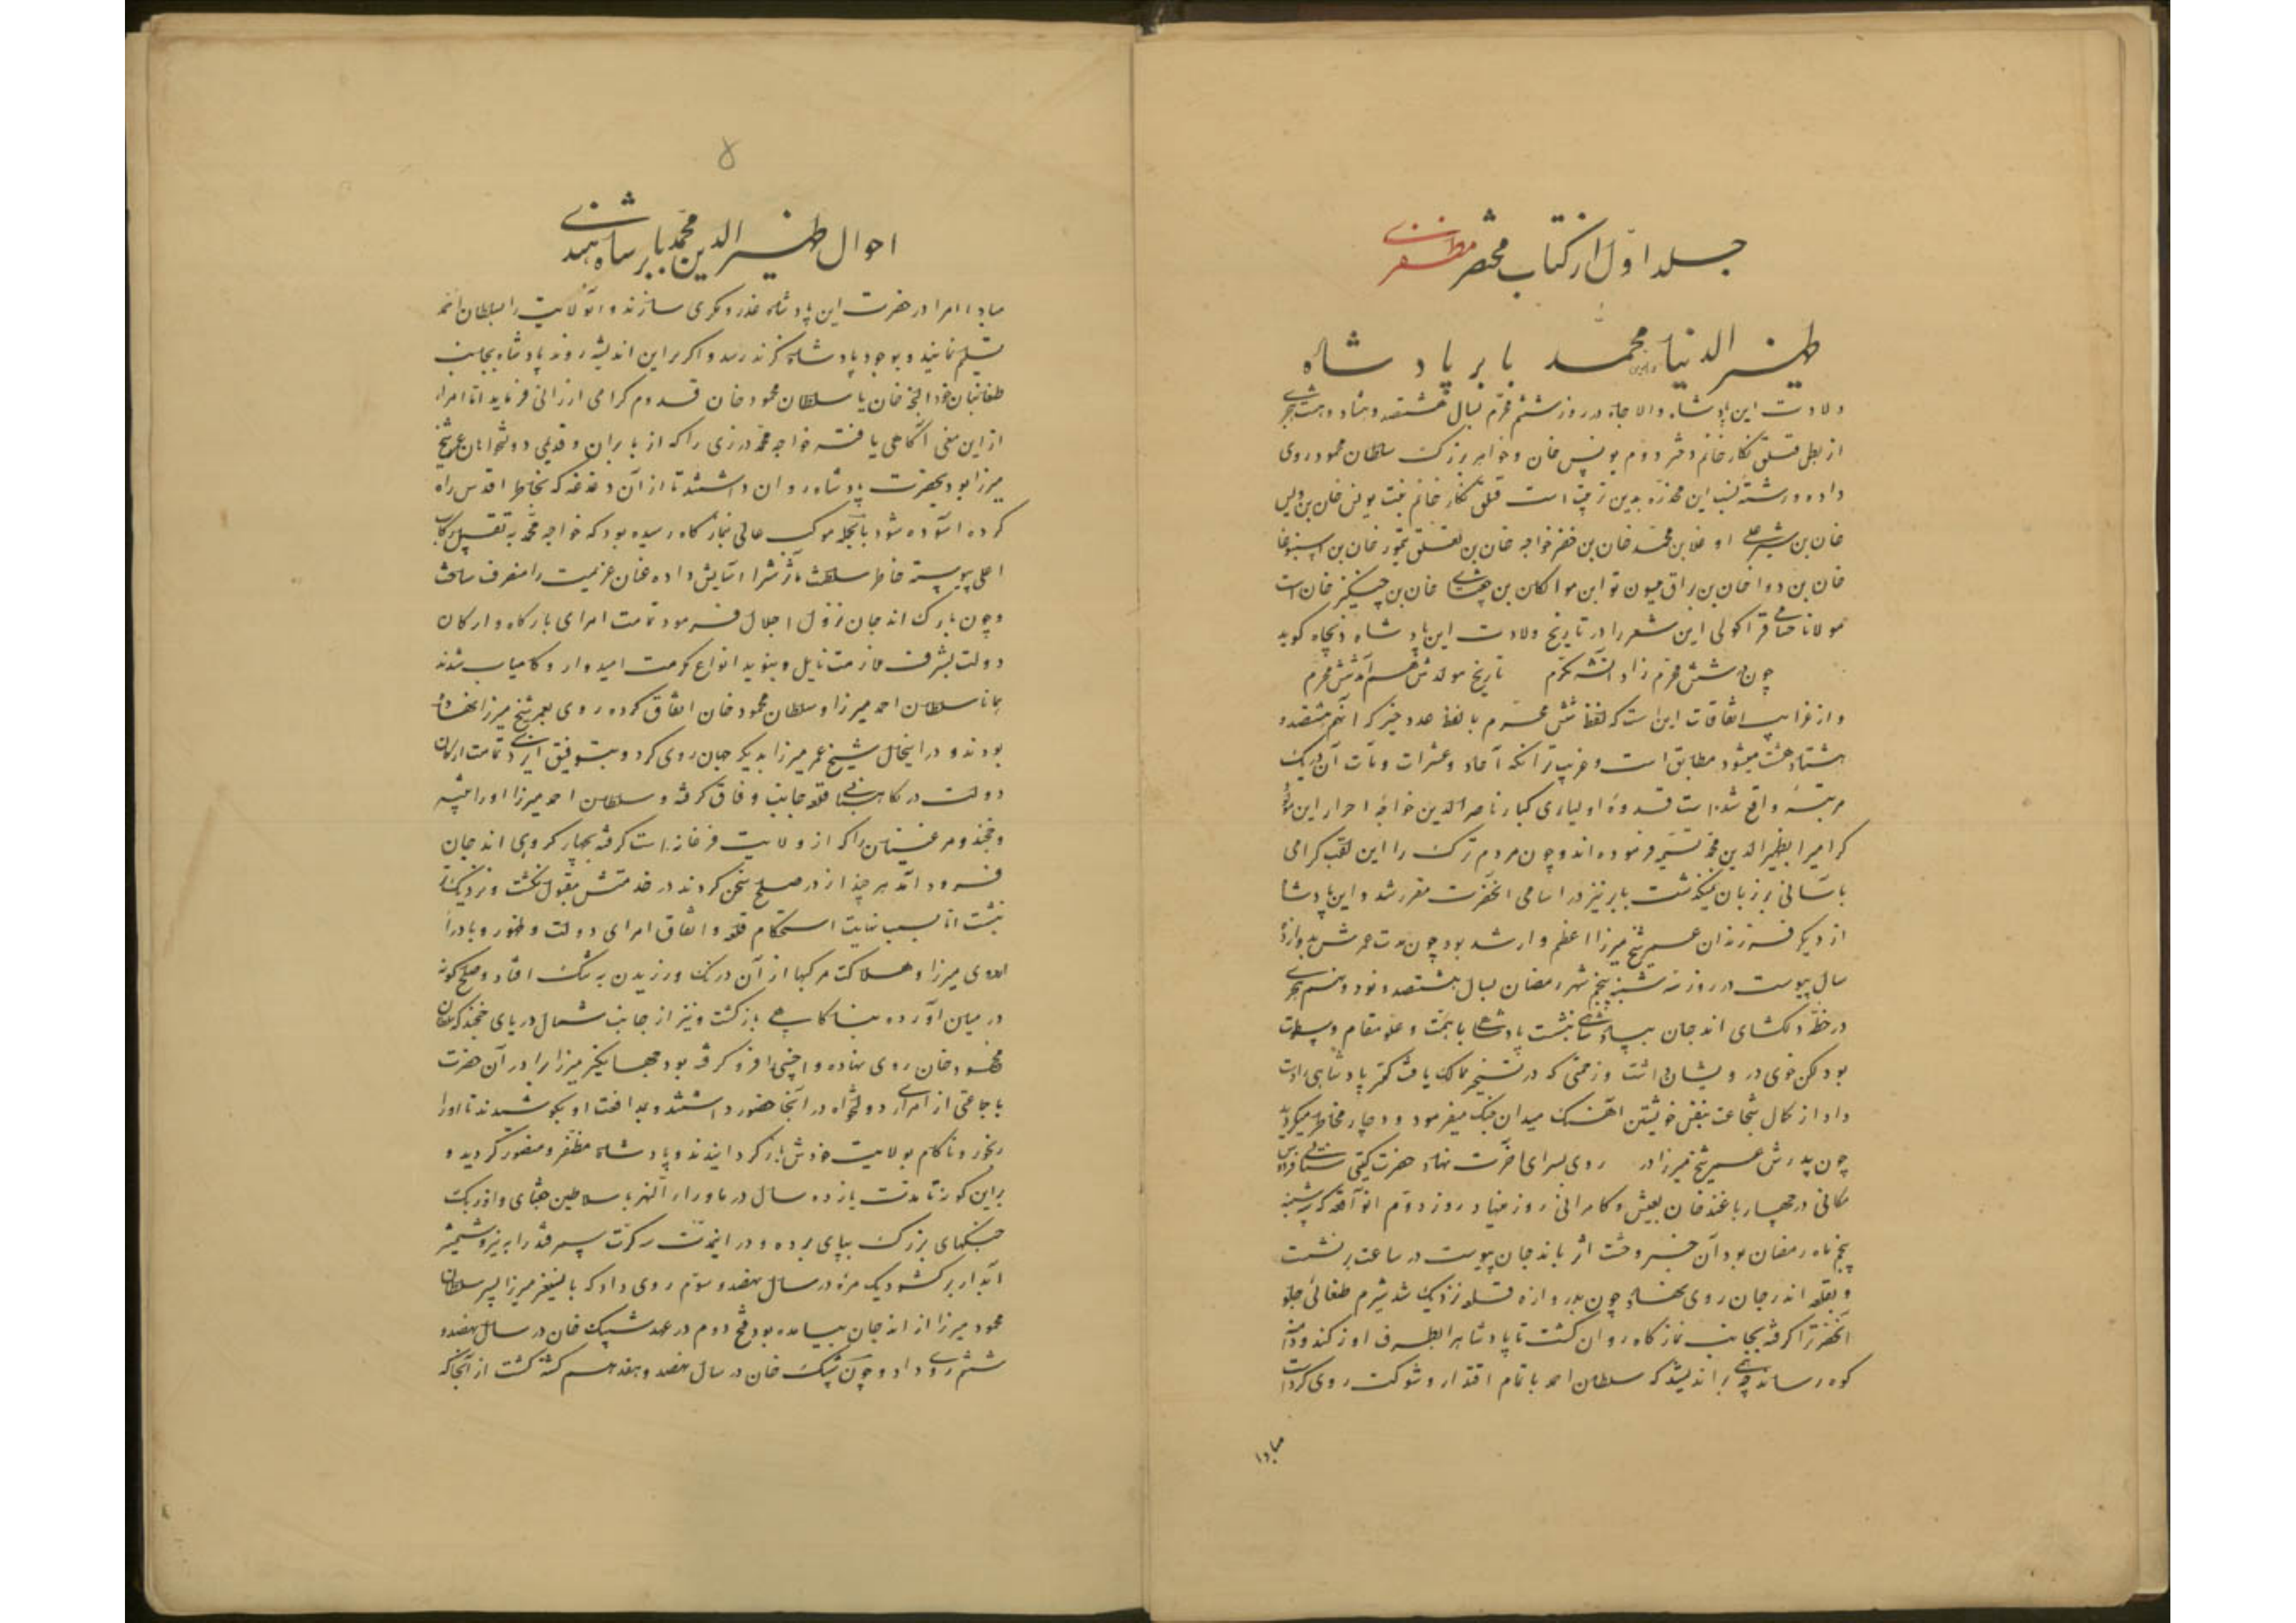 جلد اوّل از کتاب مختصر مظفری
ظهیر الدنیا والدین محمد بابر پادشاه
ولادت این پادشاه والا جاه در روز ششم محرّم بسال هشتصد و هشتاد و هشت هجری
از بطن قتلق نگار خانم دختر دوم یونس خان و خواهر بزرگ سلطان محمود روی
داده و رشتهٔ نسب این مخدّره بدین ترتیب است قتلق نگار خانم بنت یونس خان بن ویس
خان بن شیر علی اوغلا بن محمّد خان بن خضر خواجه خان بن تغلق تیمور خان بن ایسنبوغا
خان بن دوا خان بن براق بن میسون توا بن مواتکان بن چغتای خان بن چنگیز خان است
مولانا حسامی قراکولی این شعر را در تاریخ ولادت این پادشاه ذیجاه گوید
چون در شش محرّم زاد آنشه مکرّم تاریخ مولدش هم آمد شش محرّم
و از غرایب اتفاقات این است که لفظ شش محرّم با لفظ عدد خیر که آنهم هشتصد و
هشتاد و هشت میشود مطابق است و غریب تر آنکه آحاد و عشرات و مآت آن در یک
مرتبه واقع شده است قدوهٔ اولیای کبار ناصر الدین خواجه احرار این مولود
گرامیرا بظهیر الدین محمّد تسمیه فرموده اند و چون مردم ترک را این لقب گرامی
بآسانی بر زبان نمیگذشت بابر نیز در اسامی آنحضرت مقرر شد و این پادشاه
از دیگر فرزندان عمر شیخ میرزا اعظم و ارشد بود چون مدت عمرش بدوازده
سال پیوست در روز سه شنبه پنجم شهر رمضان بسال هشتصد و نود و نهم هجری
در خطّهٔ دلگشای اندجان بپادشاهی نشست پادشاهی با همّت و علو مقام و بسطوت
بود لکن خوی درویشان داشت و زحمتی که در تسخیر ممالک یافت کمتر پادشاهی را دست
داد از کمال شجاعت بنفس خویشتن آهنگ میدان جنگ میفرمود و دچار مخاطره میگردید
چون پدرش عمر شیخ میرزا در روی بسرای آخرت نهاد حضرت گیتی ستانی فردوس
مکانی در چهار باغ اندجان بعیش و کامرانی روز مینهاد روز دوّم آنواقعه که سه شنبه
پنجم ماه رمضان بود آن خبر وحشت اثر باندجان پیوست در ساعت بر نشست
و بقلعه اندرجان روی نهاد چون بدروازه قلعه نزدیک شد شیرم طغائی جلو
آنحضرترا گرفته بجانب نمازگاه روان گشت تا پادشاهرا بطرف اوزکند و دامنه
کوه رساند چه می اندیشید که سلطان احمد با تمام اقتدار و شوکت روی کرده است
مبادا
۵
احوال ظهیر الدین محمّد بابر شاه هندی
مبادا امرا در حضرت این پادشاه غدر و مکری سازند و آنولایت را بسلطان احمد
تسلیم نمایند و بوجود پادشاه گزند رسد و اگر بر این اندیشه روند پادشاه بجانب
طغائیان خود النجه خان یا سلطان محمود خان قدوم گرامی ارزانی فرماید اما امراء
از این معنی آگاهی یافته خواجه محمّد درزی را که از بابریان و قدیمی دولتخواهان عمر شیخ
میرزا بود بحضرت پادشاه روان داشتند تا از آن دغدغه که بخاطر اقدس راه
کرده آسوده شود بالجمله موکب عالی نمازگاه رسیده بود که خواجه محمّد به تقبیل رکاب
اعلی پیوسته خاطر سلطنت مآثرش را آسایش داده عنان عزیمت را منصرف ساخت
و چون بارک اندجان نزول اجلال فرمود تمامت امرای بارگاه و ارکان
دولت بشرف ملازمت نایل و بنوید انواع مکرمت امیدوار و کامیاب شدند
همانا سلطان احمد میرزا و سلطان محمود خان اتفاق کرده روی بعمر شیخ میرزا نهاده
بودند و در اینحال شیخ عمر میرزا بدیگر جهان روی کرد و بتوفیق ایزدی تمامت ارکان
دولت در نگاهبانی قلعه جانب وفاق گرفته و سلطان احمد میرزا اوراتپه
و خجند و مرغینان را که از ولایت فرغانه است گرفته بچهار کروهی اندجان
فرود آمد هر چند از در صلح سخن کردند در خدمتش مقبول نگشت و نزدیکتر
نشست اما بسبب نهایت استحکام قلعه و اتفاق امرای دولت و ظهور وبا در
اردوی میرزا و هلاکت مرکبها از آن درنگ ورزیدن به تنگ افتاد و صلح گونه
در میان آورده بناکامی بازگشت و نیز از جانب شمال دریای خجند که سلطان
محمود خان روی نهاده و اخسی را فرو گرفته بود جهانگیر میرزا برادر آن حضرت
با جماعتی از امرای دولتخواه در آنجا حضور داشتند و بمدافعت او بکوشیدند تا او را
رنجور و ناکام بولایت خودش باز گردانیدند و پادشاه مظفّر و منصور گردید و
بر این گونه تا مدت یازده سال در ماوراء النهر با سلاطین جغتای و اوزبک
جنگهای بزرگ بپای برده و در اینمدّت سه کرّت سمرقند را بنیروی شمشیر
آبدار برگشود یک مرّه در سال نهصد و سوّم روی داد که بایسنغر میرزا پسر سلطان
محمود میرزا از اندجان بیامده بود فتح دوم در عهد شیبک خان در سال نهصد و
ششم روی داد و چون شیبک خان در سال نهصد و هفدهم کشته گشت از آنجا که